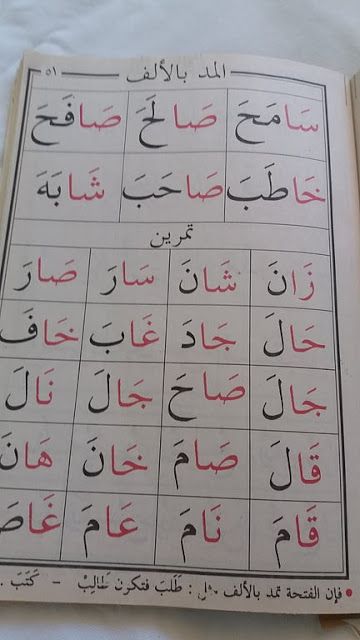 المد بالألف ٥١
سَامَحَ صَالَحَ صَافَحَ
خَاطَبَ صَاحَبَ شَابَهَ
تمرين
زَانَ شَانَ سَارَ صَارَ
حَالَ جَادَ غَابَ خَافَ
جَالَ صَاحَ جَالَ نَالَ
قَالَ صَامَ خَانَ هَانَ
قَامَ نَامَ عَامَ غَاصَ
فإن الفتحة تمد بالألف مثل : طَلَبَ فتكون طَالِبْ – كَتَبَ .